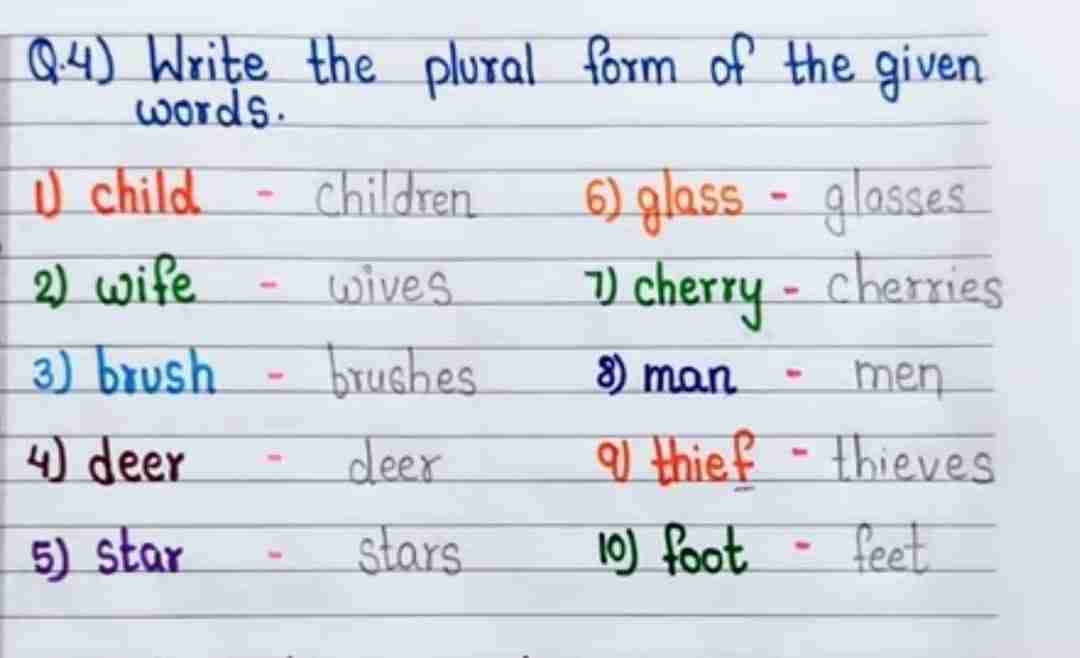 Q.4) Write the plural form of the given
words.
1) child - children 6) glass - glasses
2) wife - wives 7) cherry - cherries
3) brush - brushes 8) man - men
4) deer - deer 9) thief - thieves
5) star - stars 10) foot - feet